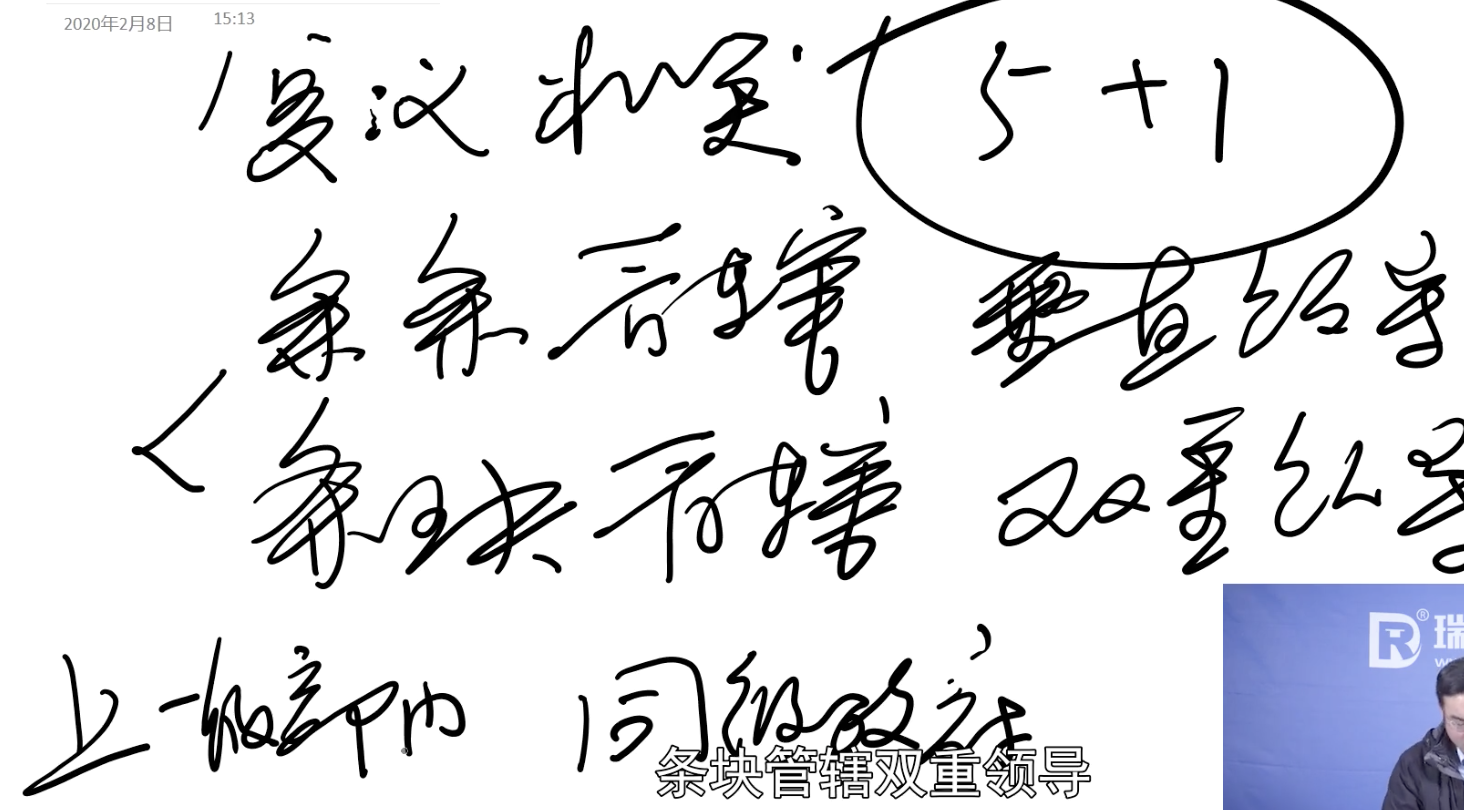 2020年2月8日 15:13
复议机关 5+1
条条管辖 垂直领导
条块管辖 双重领导
上一级部门 同级政府
条块管辖双重领导
R® 瑞
w